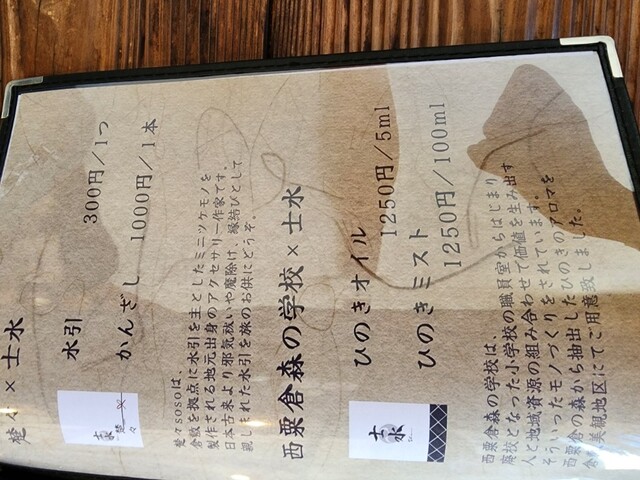 楚々 × 士水
水引 300円/1つ
かんざし 1000円/1本
楚々
楚々sosoは、
倉敷を拠点に水引を主としたミニツケモノを
製作される地元出身のアクセサリー作家です。
日本古来より邪気祓いや魔除け、縁結びとして
親しまれた水引を旅のお供にどうぞ。
西粟倉森の学校 × 士水
ひのきオイル 1250円/5ml
ひのきミスト 1250円/100ml
士水
西粟倉森の学校は、
廃校となった小学校の職員室からはじまり
人と地域資源の組み合わせで価値を生み出す
そういったモノづくりをされています。
西粟倉の森から抽出したひのきのアロマを
倉敷美観地区にてご用意致しました。